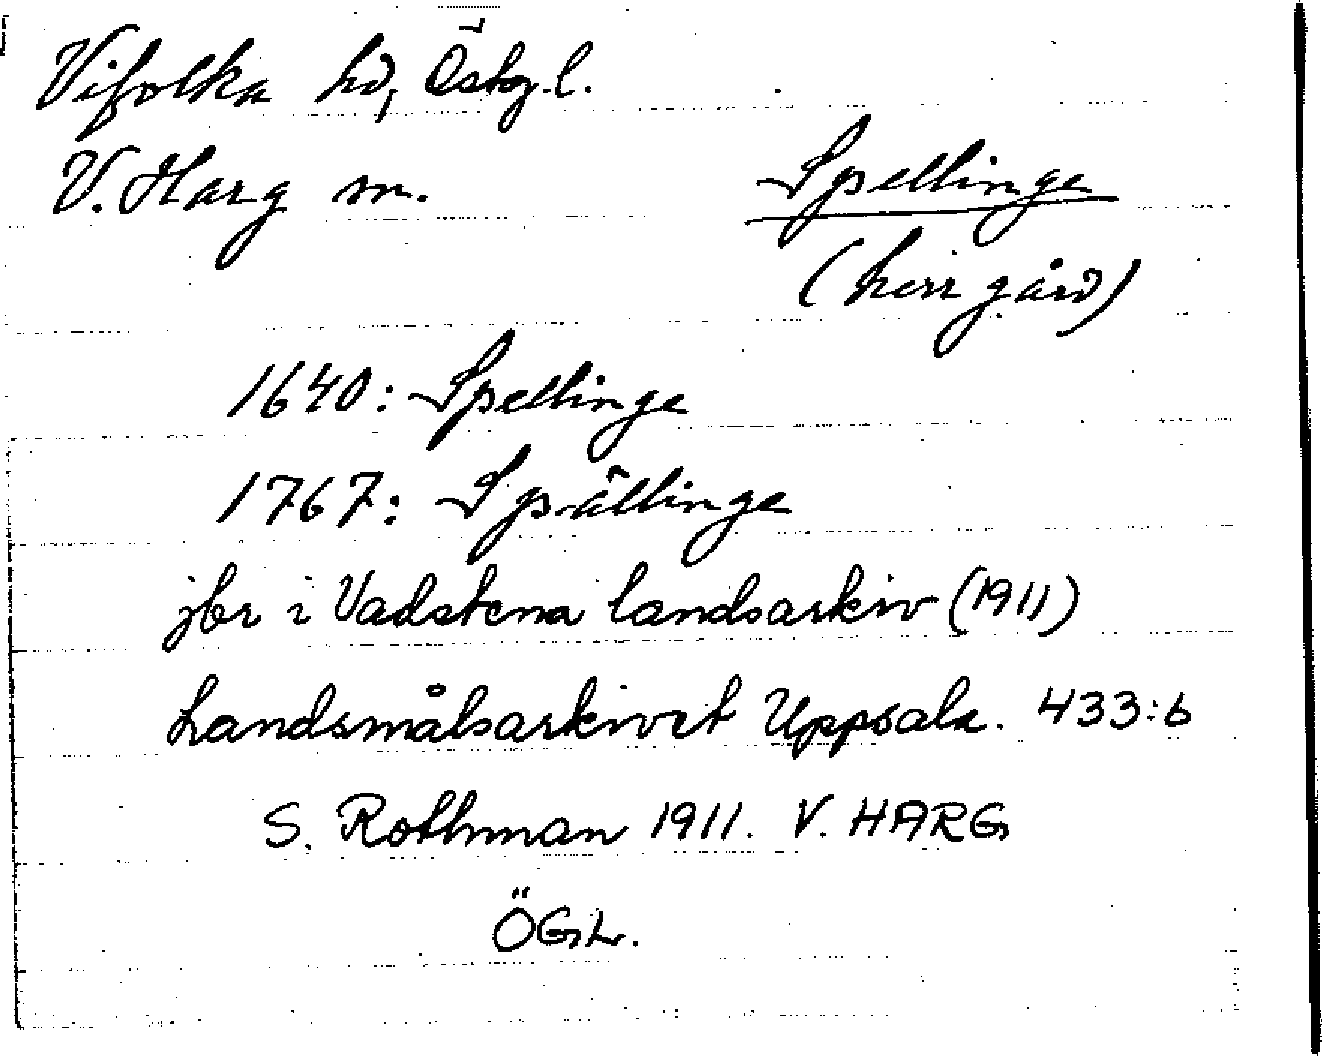 Vifolka hd, Östg.l.
V. Harg sn.
Spellinge
(herrgård)
1640: Spellinge
1767: Spällinge
jbr i Vadstena landsarkiv (1911)
Landsmålsarkivet Uppsala. 433:6
S. Rothman 1911. V. HARG
ÖGL.